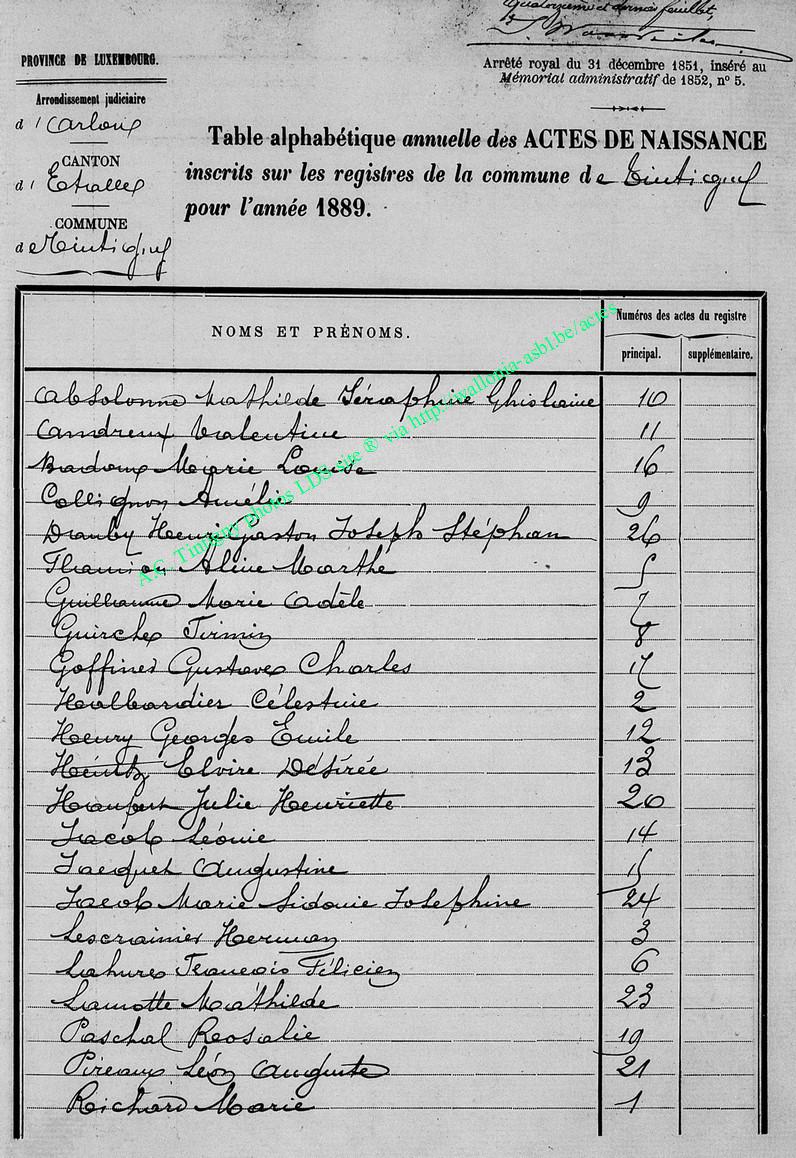 Quatorzième et dernier feuillet,
PROVINCE DE LUXEMBOURG.
Arrêté royal du 31 décembre 1851, inséré au
Mémorial administratif de 1852, n° 5.
Arrondissement judiciaire
d'Arlon
CANTON
d'Etalle
COMMUNE
de Tintigny
Table alphabétique annuelle des ACTES DE NAISSANCE
inscrits sur les registres de la commune de Tintigny
pour l'année 1889.
NOMS ET PRÉNOMS.
Numéros des actes du registre
principal. supplémentaire.
Absolonne Mathilde Séraphine Ghislaine 10
Andreux Valentine 11
Badoux Marie Louise 16
Collignon Amélie 9
Henri Gaston Joseph Stéphan 26
Aline Marthe 5
Guillaume Marie Adèle 7
Guirche Firmin 8
Goffinet Gustave Charles 17
Halbardier Célestine 2
Henry Georges Emile 12
Heintz Elvire Désirée 13
Haupert Julie Henriette 20
Jacob Léonie 14
Jacquet Augustine 15
Jacob Marie Sidonie Joséphine 24
Lescrainier Herman 3
Lahure François Félicien 6
Lamotte Mathilde 23
Paschal Rosalie 19
Pireaux Léon Auguste 21
Richard Marie 1
A.C. Tintigny photos LDS site ® via http://wallonia-asbl.be/actes